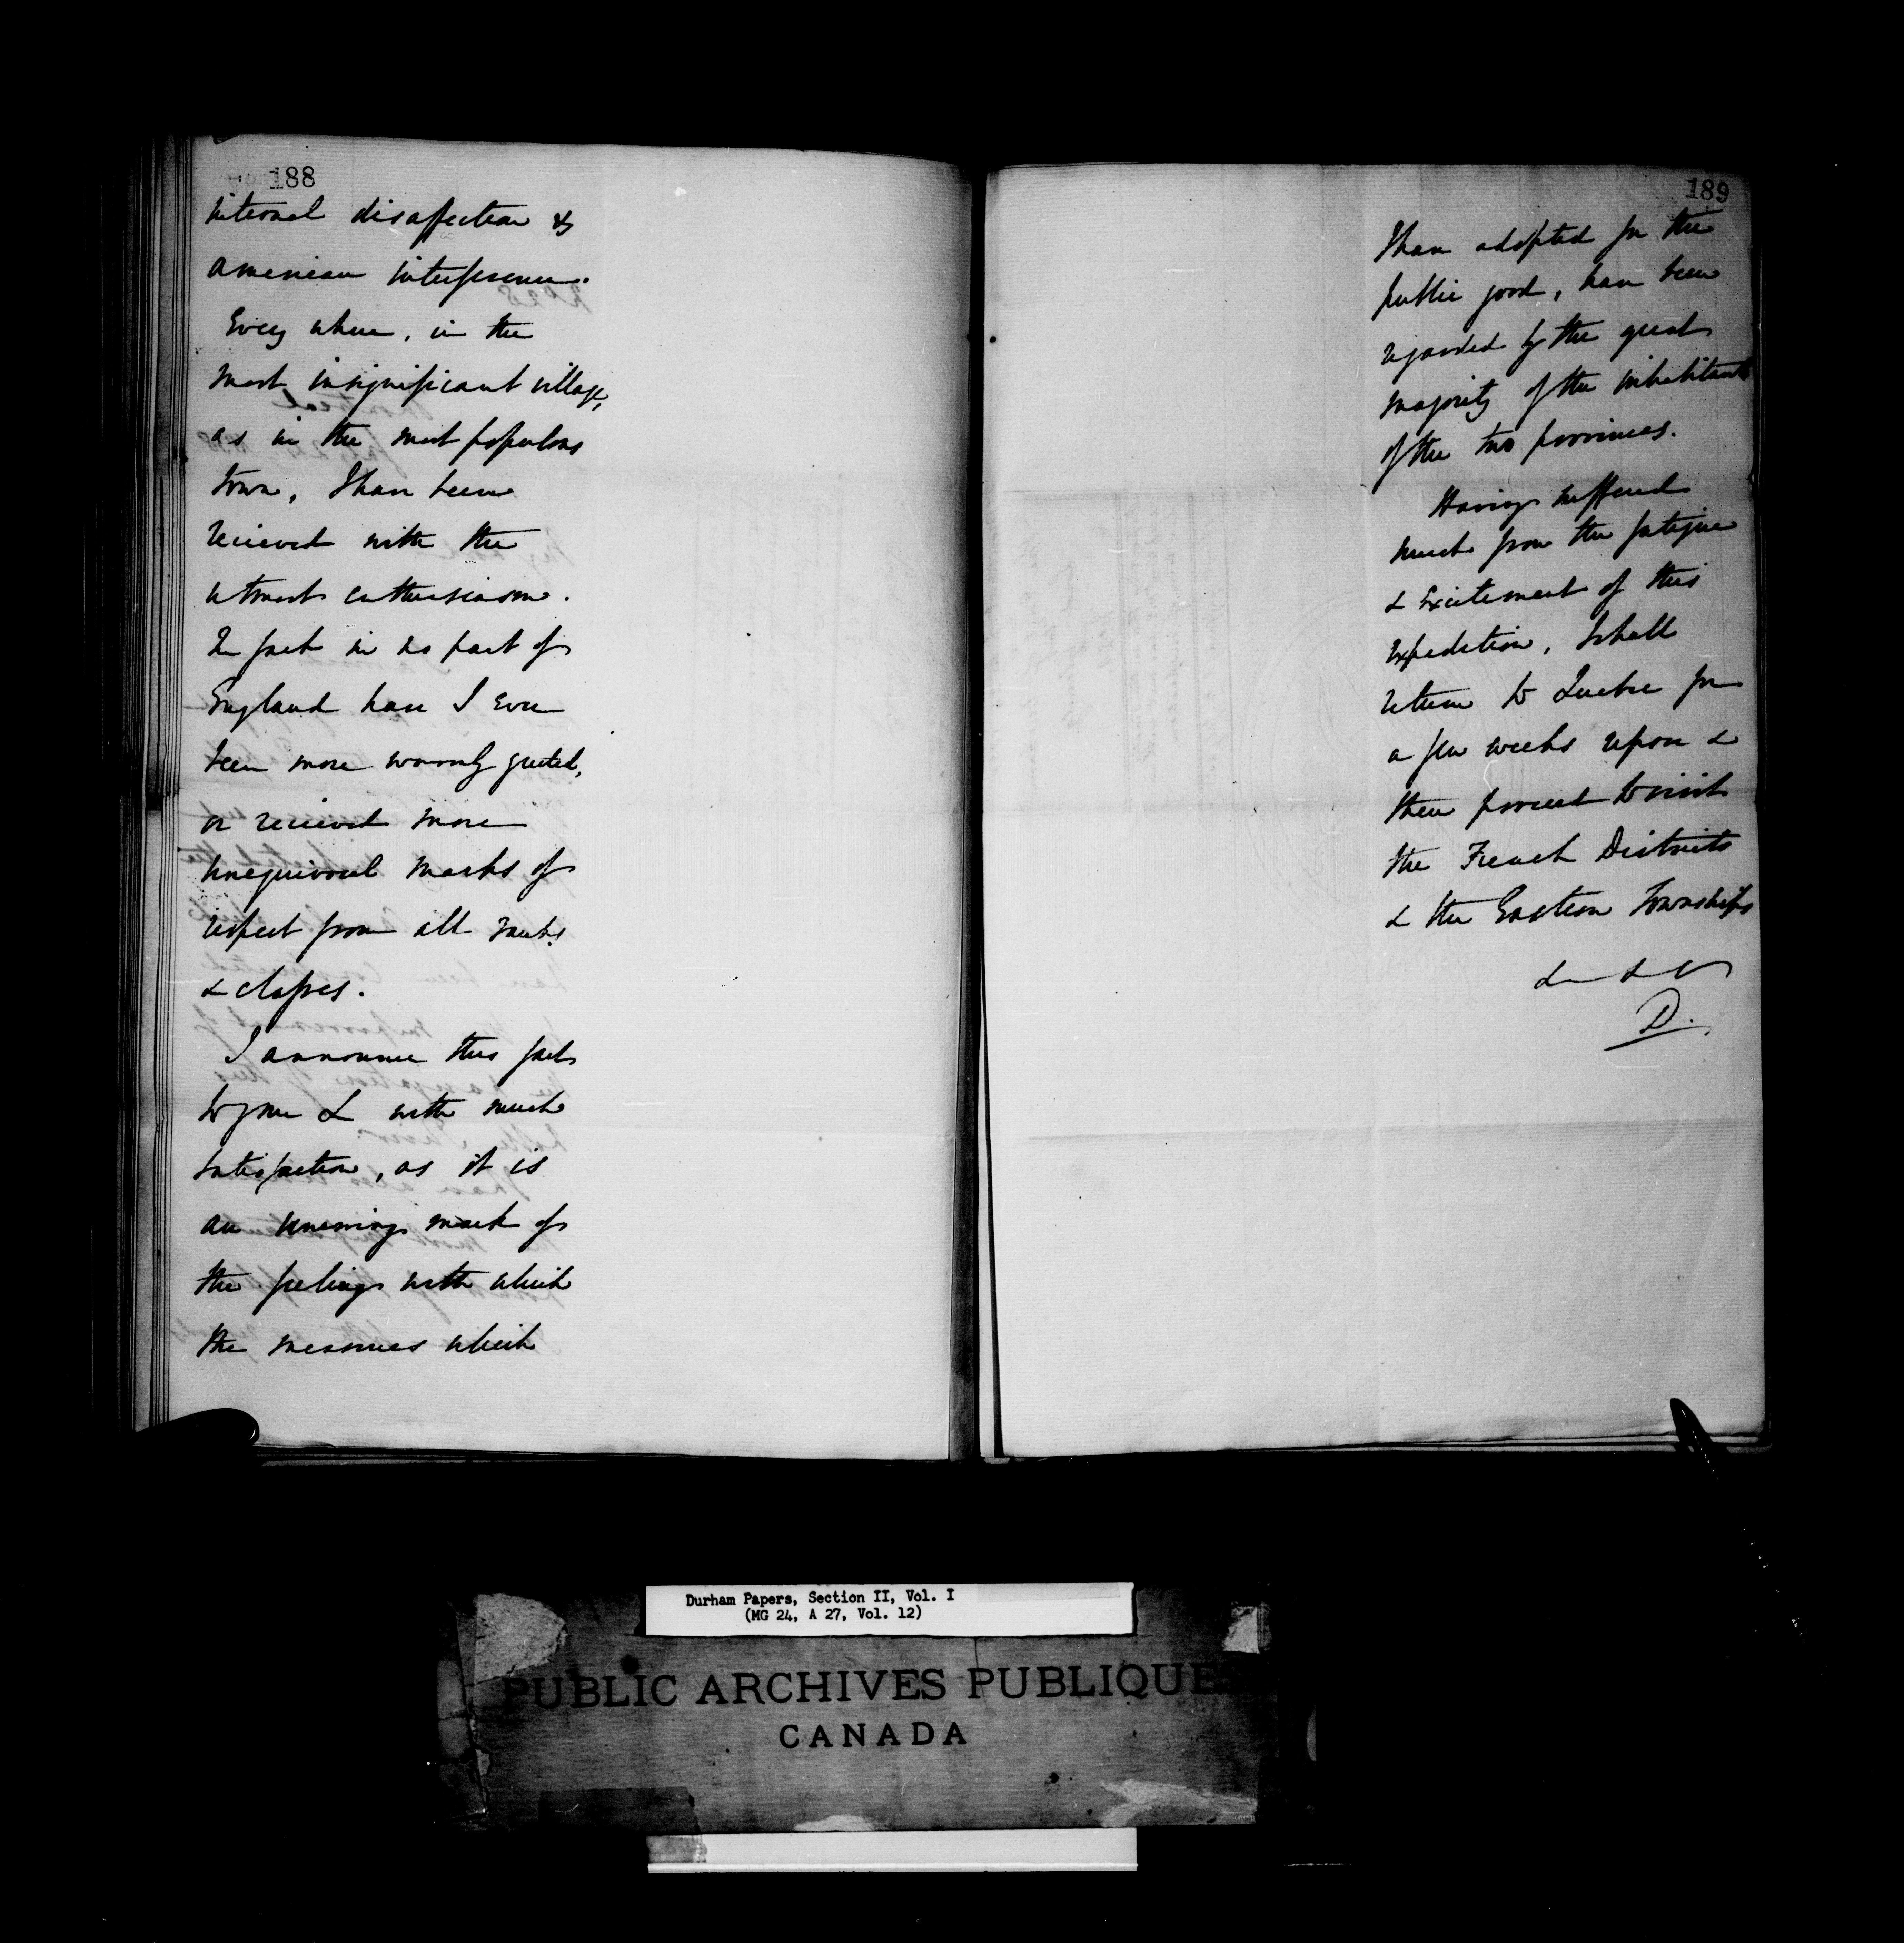 188
internal disaffection &
American interference.
Every where, in the
most insignificant village,
as in the most populous
town, I have been
recieved with the
utmost enthusiasm.
In fact in no part of
England have I ever
been more warmly greeted,
or recieved more
unequivocal marks of
respect from all ranks
& classes.
I announce this fact
to your L with much
satisfaction, as it is
an unerring mark of
the feelings with which
the measures which
189
I have adopted for the
public good, have been
regarded by the great
majority of the inhabitants
of the two provinces.
Having suffered
much from the fatigue
& excitement of this
expedition, I shall
return to Quebec for
a few weeks repose &
then proceed to visit
the French Districts
& the Eastern Townships
D.
Durham Papers, Section II, Vol. I
(MG 24, A 27, Vol. 12)
PUBLIC ARCHIVES PUBLIQUES
CANADA